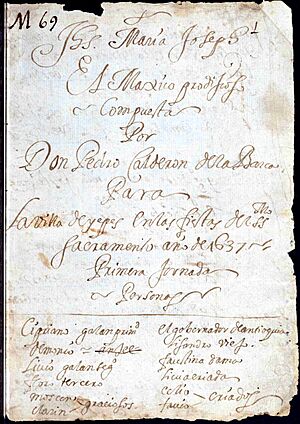 M 69
Jhs. Maria Joseph
El Maxico prodijioso
Compuesta
Por
Don Pedro Calderon de la Barca
Para
La villa de yepes en las fiestas del SSmo
Sacramento año de 1637
Primera Jornada
Personas
Cipriano galan prim°
Demonio
Livio galan seg°
floro tercero
moscon graciosos
clarin
el gobernador de antioquia
lisandro viejo
faustina dama
livia criada
celio criados
favio